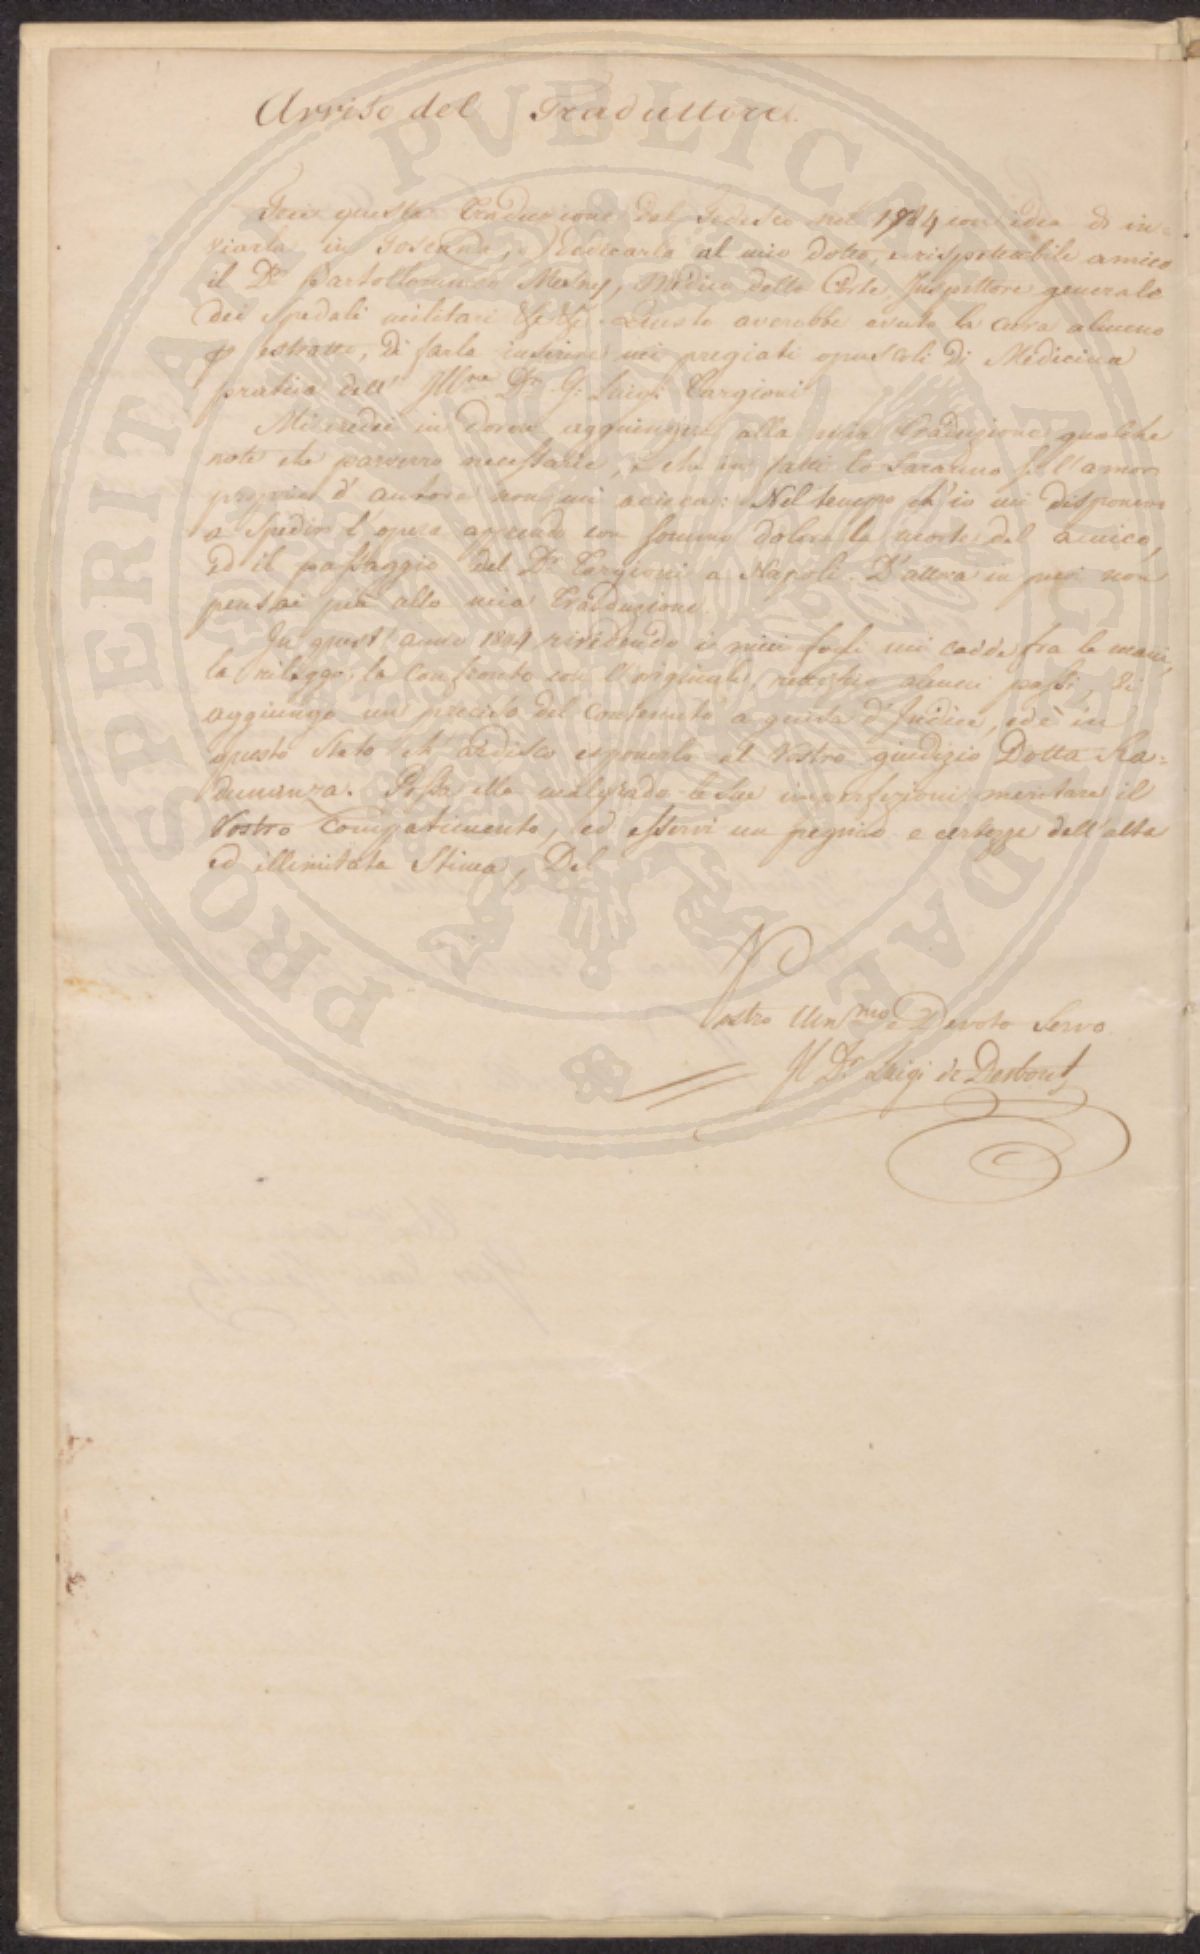 Avviso del Traduttore.
Feci questa Traduzione dal Tedesco nel 1784 con idea di in=
viarla in Toscana, e Dedicarla al mio dotto, e rispettabile amico
il Dr. Bartolommeo Mesny, Medico della Corte, Inspettore generale
dei Spedali militari &c &c. Questo averebbe avuto la cura almeno
p estratto, di farla inserire nei pregiati opuscoli di Medicina
pratica dell' Illre Dr. G: Luigi Targioni
Mi credei in dovere aggiungere alla mia Traduzione qualche
note che parvero necessarie, e che in fatti lo saranno se l'amor
proprio d' autore non mi acceca: Nel tempo ch'io mi disponevo
a spedir l'opera apprendo con sommo dolore la morte del amico,
ed il passaggio del Dr. Targioni a Napoli. D'allora in poi non
pensai più alla mia Traduzione.
In quest' anno 1804 rivedendo i miei fogli mi cadde fra le mani,
la rileggo, la confronto con l'originale, rettifico alcuni passi, vi
aggiungo un preciso del contenuto a guisa d'Indice, ed è in
questo stato ch' ardisco esponerla al Vostro giudizio Dotta Ra=
dunanza. Possa ella malgrado le sue imperfezioni meritare il
Vostro compatimento, ed esservi un pegno e certezza dell'alta
ed illimitata Stima, Del
Vostro Umsmo e Devoto Servo
Il Dr. Luigi de Desbout